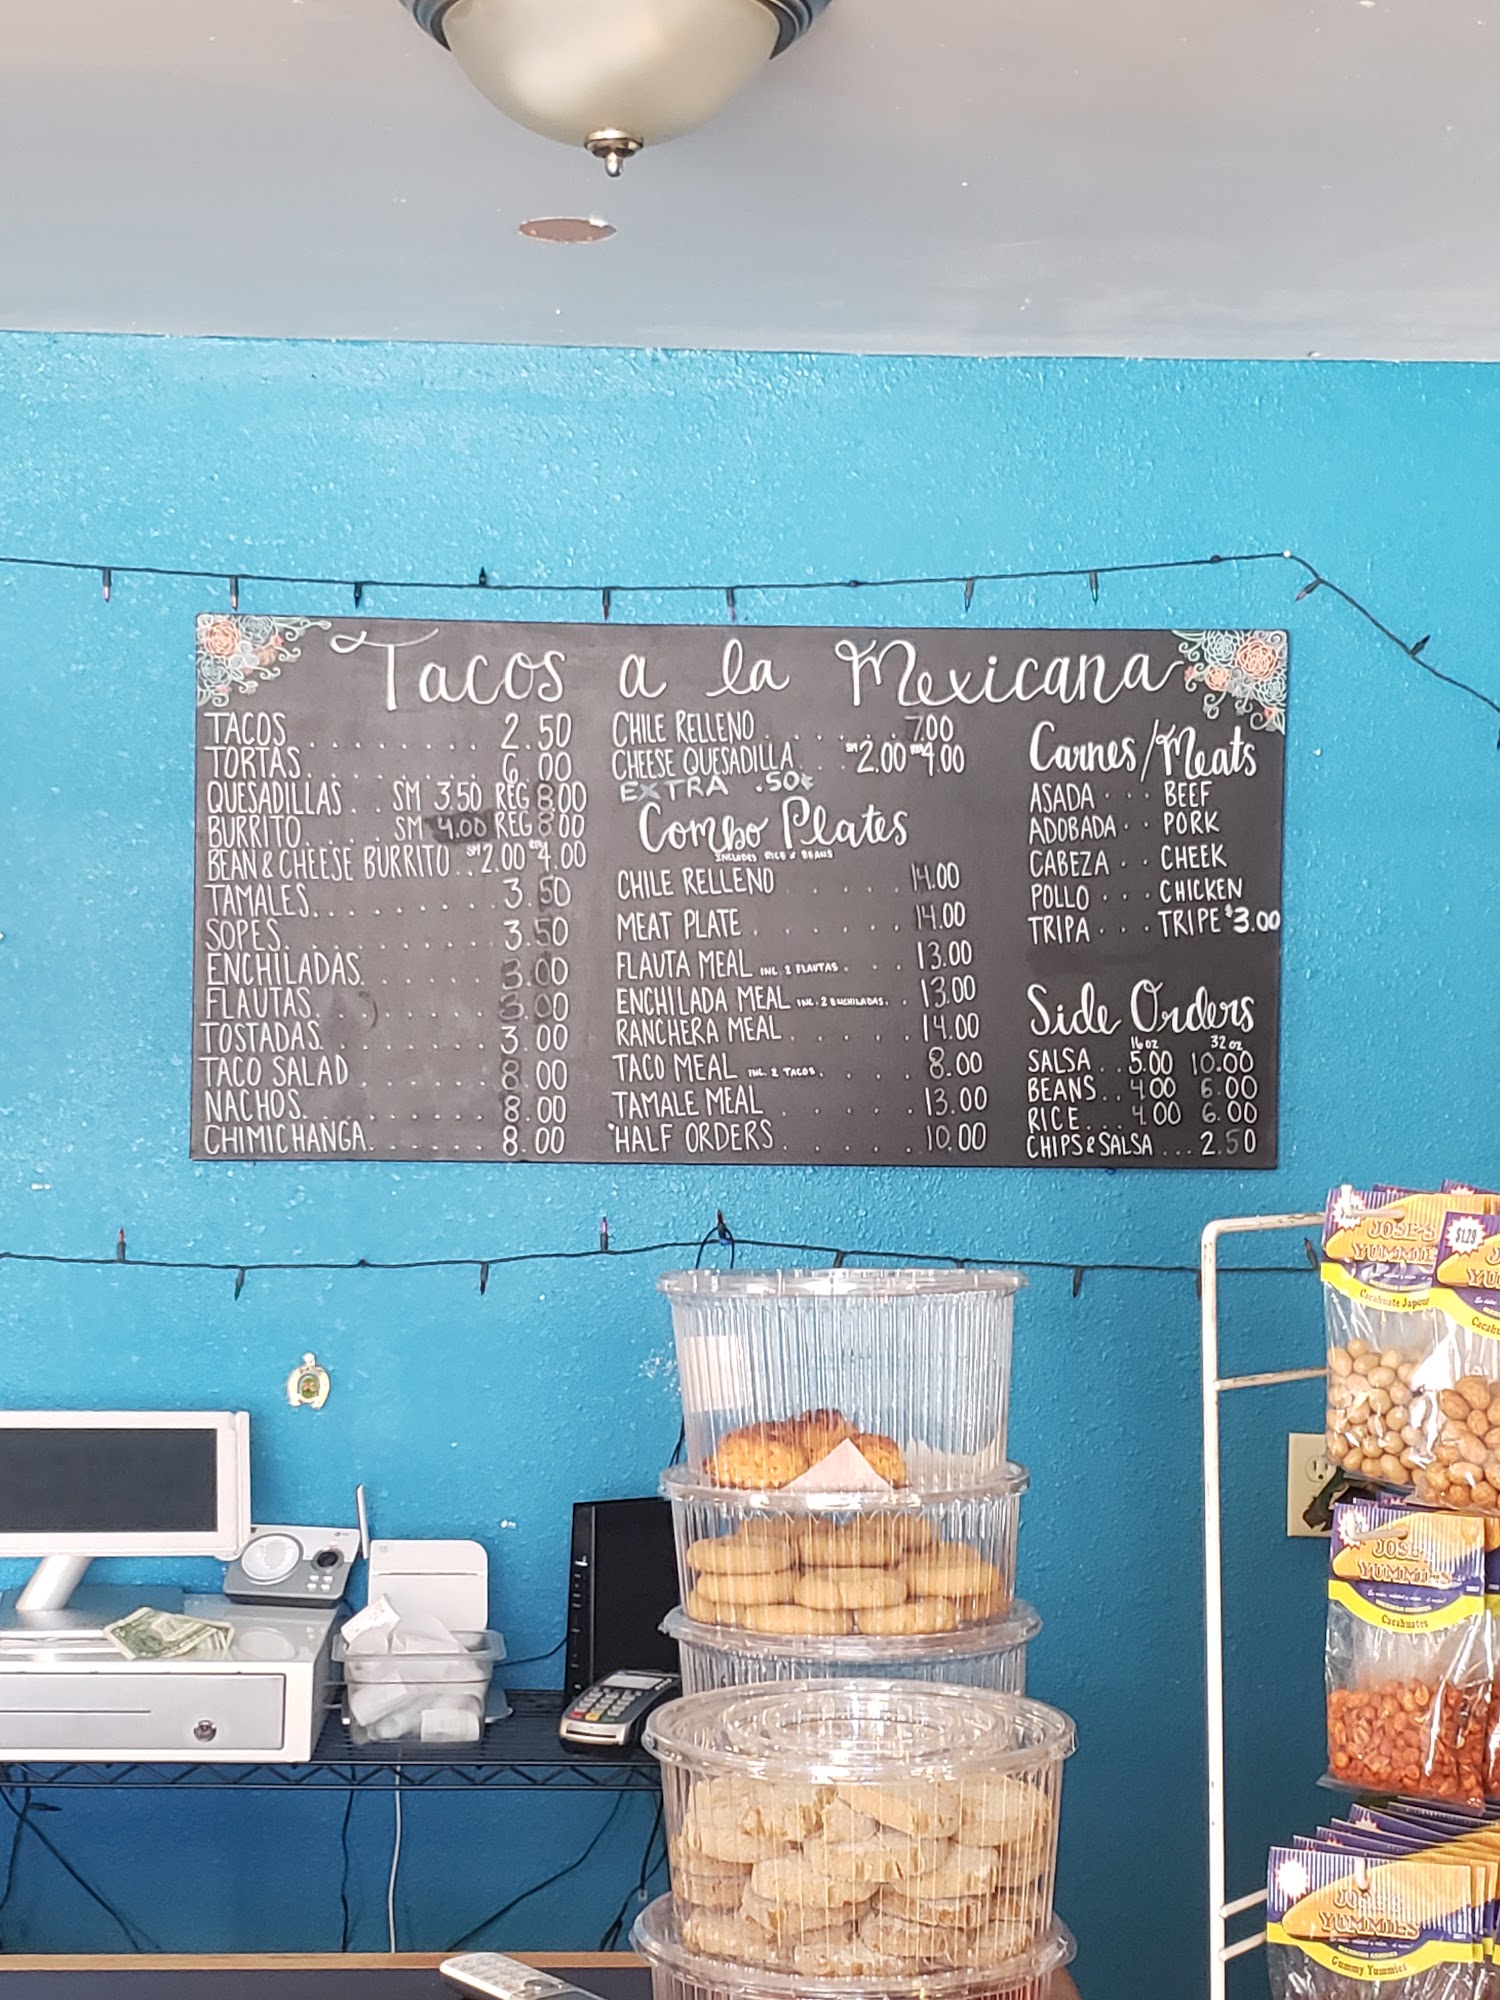 Tacos a la Mexicana
TACOS ........ 2.50
TORTAS ........ 6.00
QUESADILLAS .. SM 3.50 REG 8.00
BURRITO ..... SM 4.00 REG 8.00
BEAN & CHEESE BURRITO .. SM 2.00 REG 4.00
TAMALES ......... 3.50
SOPES .......... 3.50
ENCHILADAS ....... 3.00
FLAUTAS ......... 3.00
TOSTADAS ........ 3.00
TACO SALAD ...... 8.00
NACHOS ......... 8.00
CHIMICHANGA ...... 8.00
CHILE RELLENO ...... 7.00
CHEESE QUESADILLA ... SM 2.00 REG 4.00
EXTRA .50¢
Combo Plates
INCLUDES RICE & BEANS
CHILE RELLENO ..... 14.00
MEAT PLATE ...... 14.00
FLAUTA MEAL INC. 2 FLAUTAS .... 13.00
ENCHILADA MEAL INC. 2 ENCHILADAS .. 13.00
RANCHERA MEAL ..... 14.00
TACO MEAL INC. 2 TACOS ..... 8.00
TAMALE MEAL ...... 13.00
HALF ORDERS ..... 10.00
Carnes/Meats
ASADA ... BEEF
ADOBADA .. PORK
CABEZA .. CHEEK
POLLO ... CHICKEN
TRIPA ... TRIPE $3.00
Side Orders
16 oz 32 oz
SALSA .. 5.00 10.00
BEANS .. 4.00 6.00
RICE ... 4.00 6.00
CHIPS & SALSA ... 2.50
JOSE'S
YUMMIE
Cacahuate Japon
$1.79
JOSE'S
YUMMIES
Cacahuates
JOSE'S
YUMMIES
Gummy Yummies